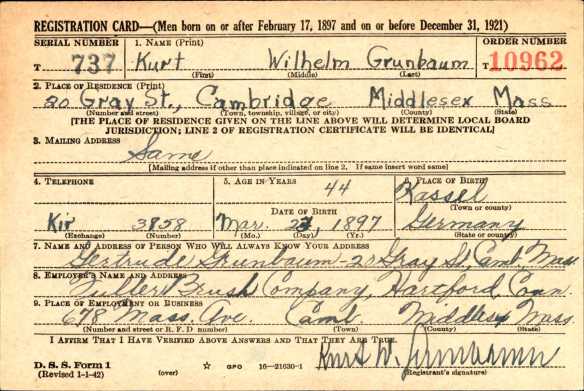 REGISTRATION CARD—(Men born on or after February 17, 1897 and on or before December 31, 1921)
SERIAL NUMBER 1. NAME (Print) ORDER NUMBER
T 737 Kurt Wilhelm Grunbaum T 10962
(First) (Middle) (Last)
2. PLACE OF RESIDENCE (Print)
20 Gray St., Cambridge Middlesex Mass
(Number and street) (Town, township, village, or city) (County) (State)
[THE PLACE OF RESIDENCE GIVEN ON THE LINE ABOVE WILL DETERMINE LOCAL BOARD
JURISDICTION; LINE 2 OF REGISTRATION CERTIFICATE WILL BE IDENTICAL]
3. MAILING ADDRESS
Same
[Mailing address if other than place indicated on line 2. If same insert word same]
4. TELEPHONE 5. AGE IN YEARS 6. PLACE OF BIRTH
44 Kassel
DATE OF BIRTH (Town or county)
Kir 3858 Mar. 1897 Germany
(Exchange) (Number) (Mo.) (Day) (Yr.) (State or country)
7. NAME AND ADDRESS OF PERSON WHO WILL ALWAYS KNOW YOUR ADDRESS
Gertrude Grunbaum - 20 Gray St, Camb Mass
8. EMPLOYER'S NAME AND ADDRESS
Fuller Brush Company, Hartford, Conn.
9. PLACE OF EMPLOYMENT OR BUSINESS
678 Mass. Ave. Camb. Middlesex Mass.
(Number and street or R. F. D number) (Town) (County) (State)
I AFFIRM THAT I HAVE VERIFIED ABOVE ANSWERS AND THAT THEY ARE TRUE.
D. S. S. Form 1
(Revised 1-1-42) (over) ☆ GPO 16—21630-1 Kurt W. Grunbaum
(Registrant's signature)